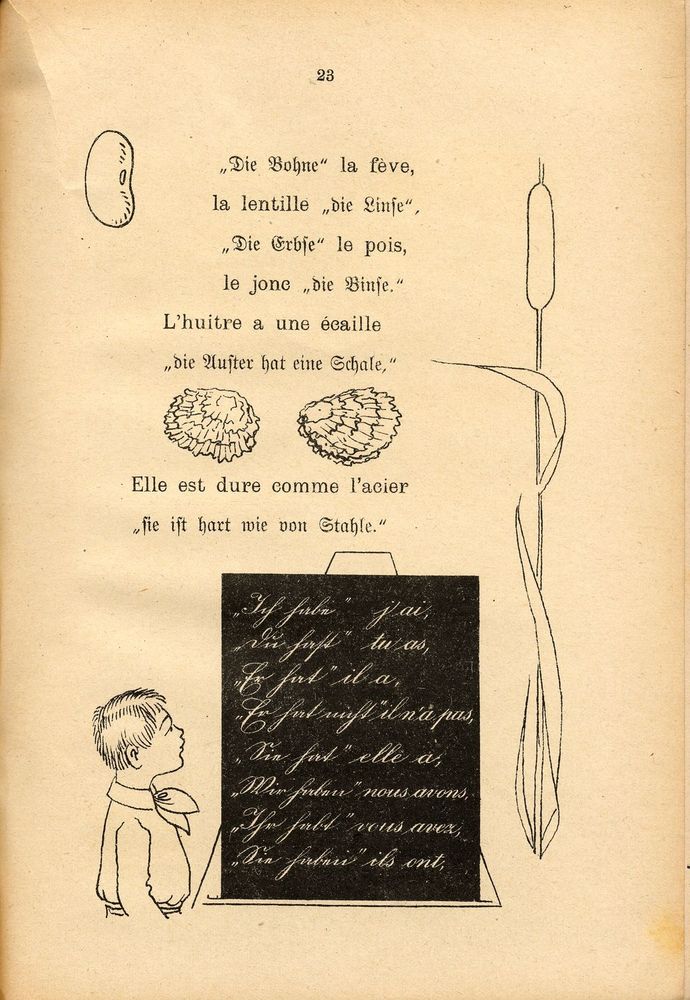 23
„Die Bohne“ la fève,
la lentille „die Linse“,
„Die Erbse“ le pois,
le jonc „die Binse.“
L'huitre a une écaille
„die Auster hat eine Schale,“
Elle est dure comme l'acier
„sie ist hart wie von Stahle.“
„Ich habe“ j'ai,
„Du hast“ tu as,
„Er hat“ il a,
„Er hat nicht“ il n'a pas,
„Sie hat“ elle a,
„Wir haben“ nous avons,
„Ihr habt“ vous avez,
„Sie haben“ ils ont,